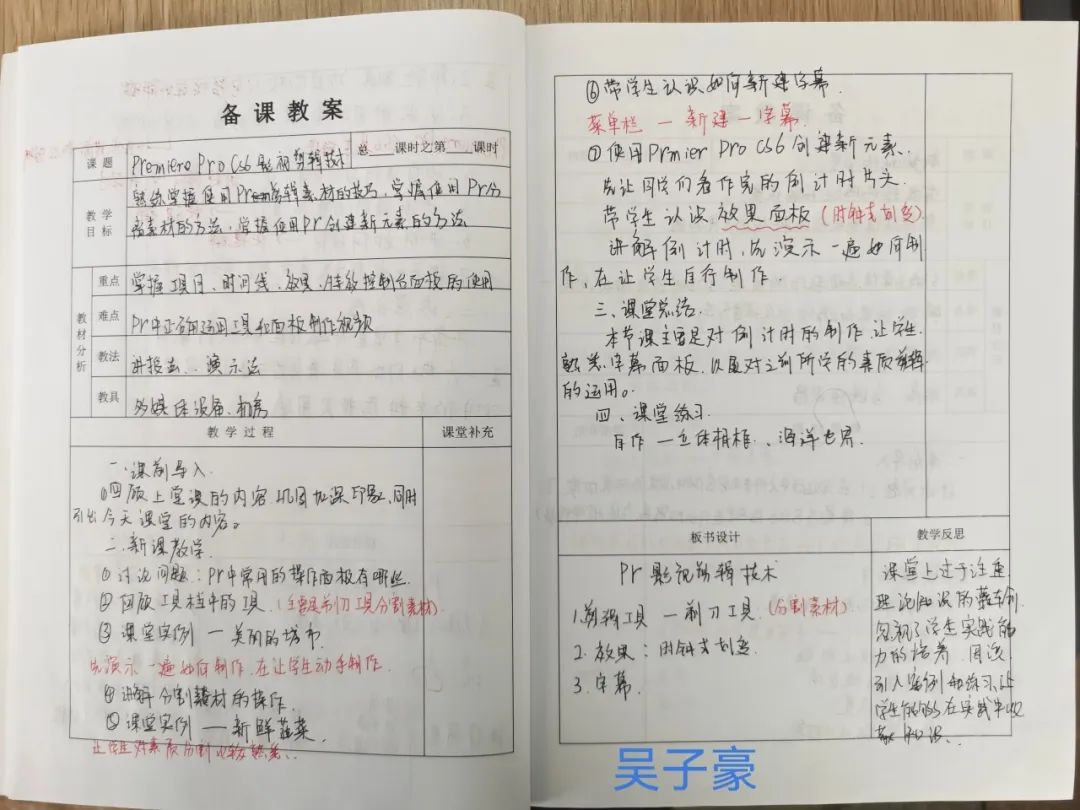 备课教案
课题 Premiere Pro Cs6影视剪辑技术 总 课时之第 课时
教学目标 熟练掌握使用Pr剪辑素材的技巧,掌握使用Pr分
离素材的方法,掌握使用Pr创建新元素的方法
教材分析
重点 掌握项目、时间线、效果、特效控制台面板的使用
难点 Pr中正确运用工具和面板制作视频
教法 讲授法、演示法
教具 多媒体设备、机房
教学过程 课堂补充
一、课前导入
①回顾上堂课的内容 巩固加深印象,同时
引出今天课堂的内容。
二、新课教学
①讨论问题:Pr中常用的操作面板有哪些.
②回顾工具栏中的工具.(主要是剃刀工具分割素材)
③课堂实例—美丽的城市
先演示一遍如何制作,在让学生动手制作.
④讲解分割素材的操作.
⑤课堂实例—新鲜蔬菜.
让学生对素质分割比较熟悉..
⑥带学生认识如何新建字幕.
菜单栏—新建—字幕.
⑦使用Prmier Pro CS6创建新元素.
先让同学们看作完的倒计时片头.
带学生认识效果面板(时钟式划变)
讲解倒计时,先演示一遍如何制
作,在让学生自行制作.
三、课堂总结.
本节课主要是对倒计时的制作让学生
熟悉字幕面板,以及对之前所学的素质剪辑
的运用。
四、课堂练习.
自作—立体相框、海洋世界.
板书设计 教学反思
Pr影视剪辑技术
1.剪辑工具—剃刀工具(分割素材)
2.效果:时钟式划变
3.字幕.
课堂上过于注重
理论知识的灌输,
忽视了学生实践能
力的培养.
引入案例和练习,让
学生能够在实践中
知识.
吴子豪